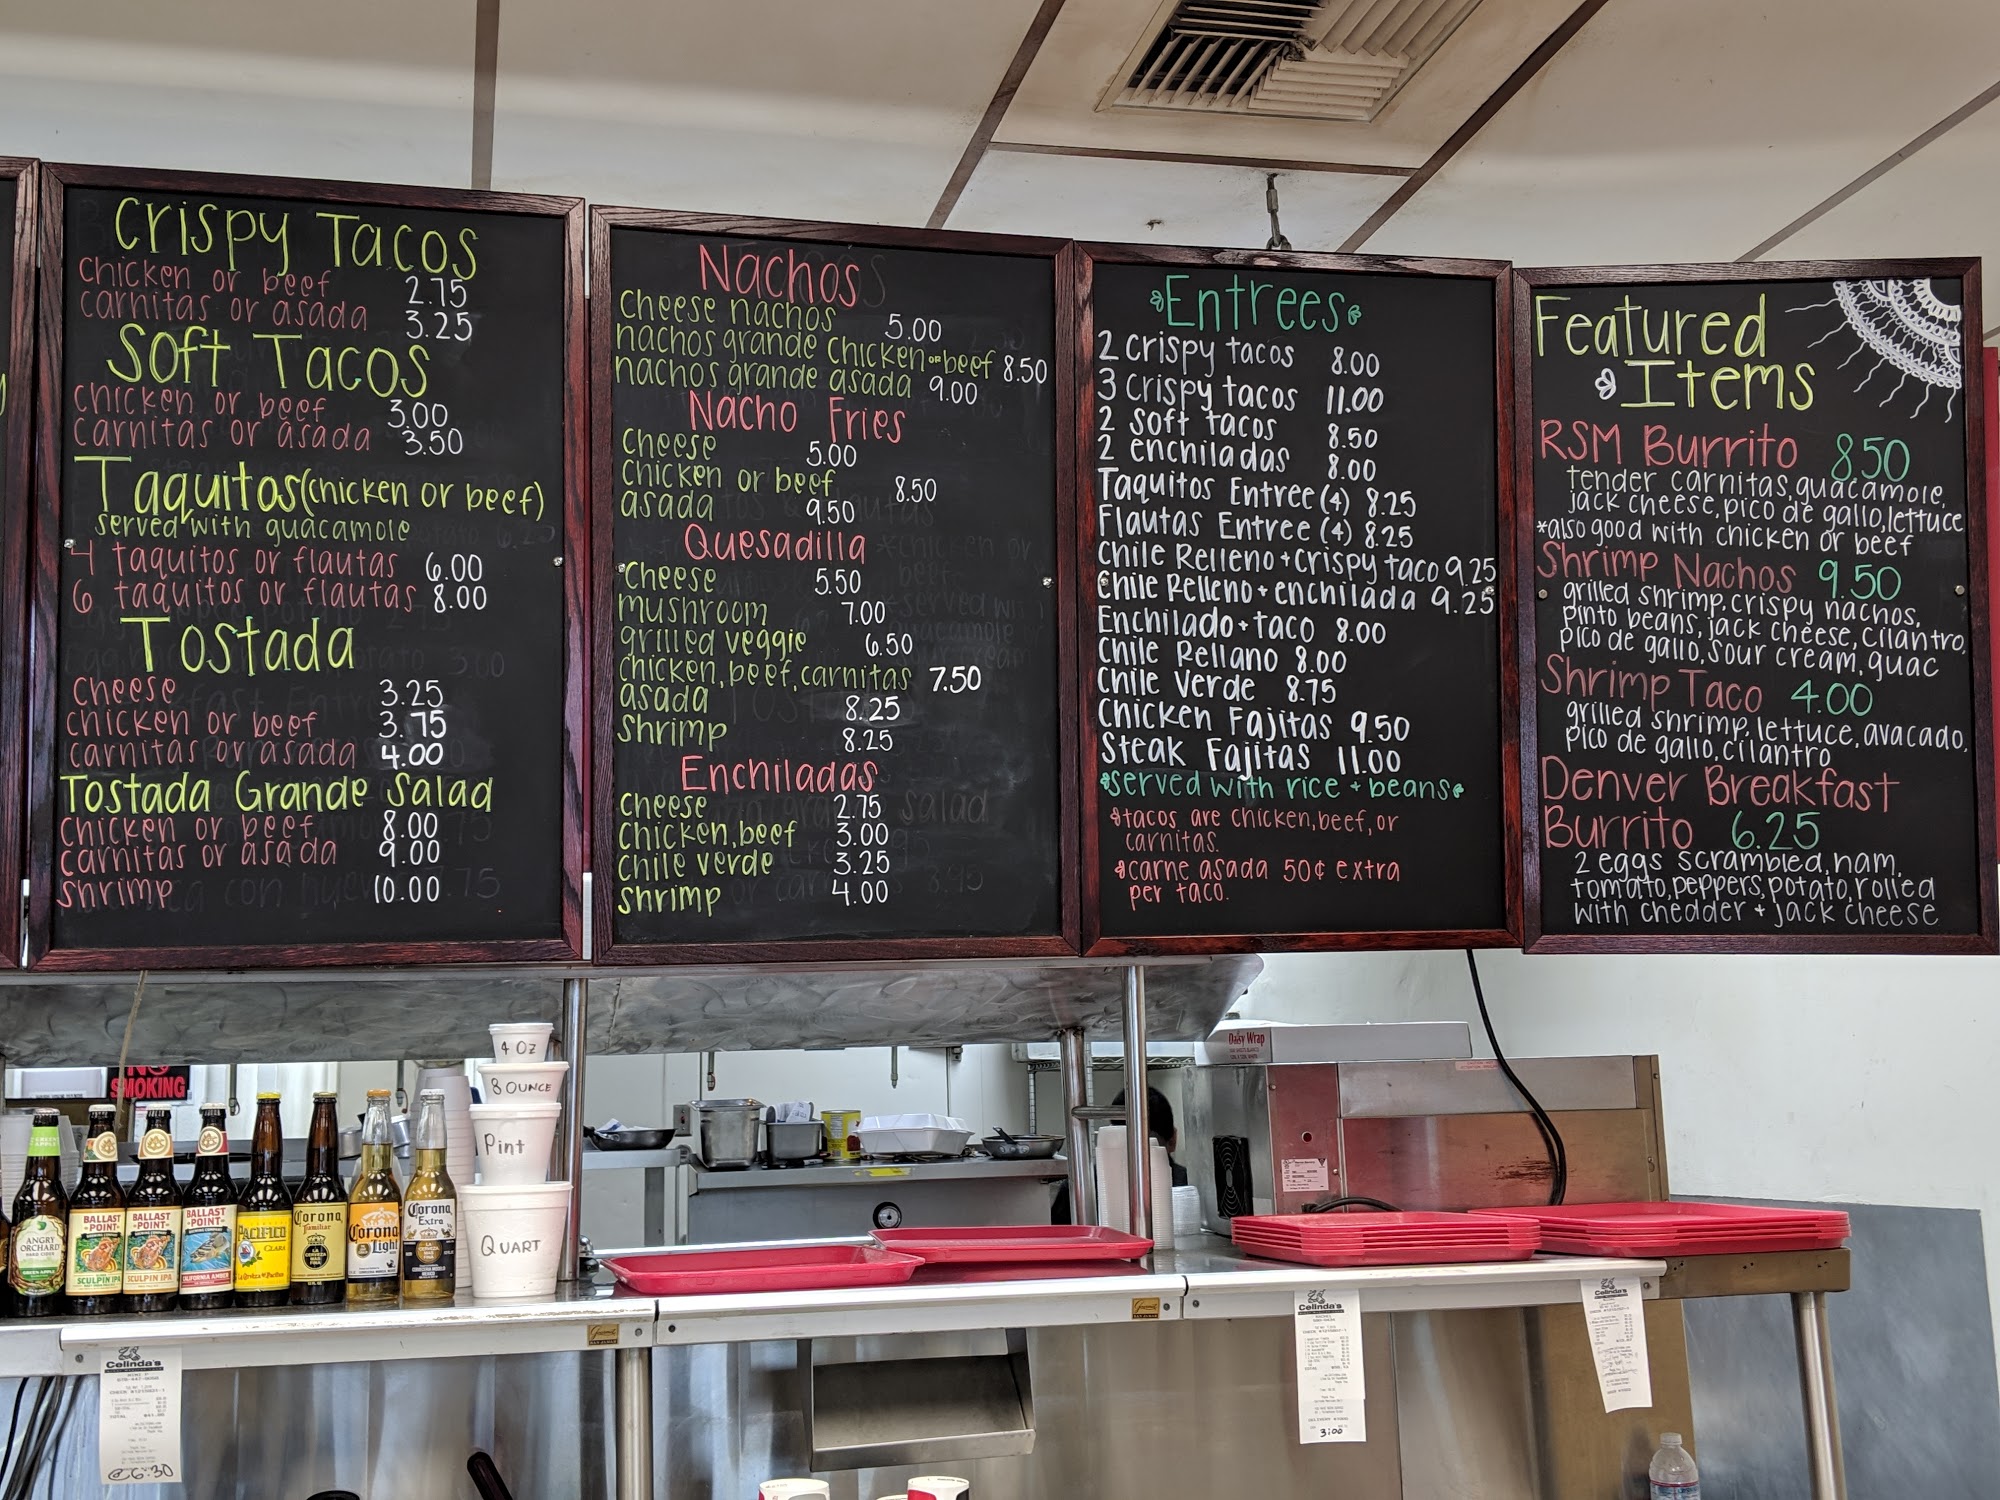 Crispy Tacos
chicken or beef 2.75
carnitas or asada 3.25
Soft Tacos
chicken or beef 3.00
carnitas or asada 3.50
Taquitos (chicken or beef)
served with guacamole
4 taquitos or flautas 6.00
6 taquitos or flautas 8.00
Tostada
Cheese 3.25
chicken or beef 3.75
carnitas or asada 4.00
Tostada Grande Salad
Chicken or beef 8.00
carnitas or asada 9.00
shrimp 10.00
Nachos
Cheese nachos 5.00
nachos grande chicken or beef 8.50
nachos grande asada 9.00
Nacho Fries
Cheese 5.00
Chicken or beef 8.50
asada 9.50
Quesadilla
Cheese 5.50
mushroom 7.00
grilled veggie 6.50
chicken, beef, carnitas 7.50
asada 8.25
shrimp 8.25
Enchiladas
Cheese 2.75
Chicken, beef 3.00
chile verde 3.25
shrimp 4.00
Entrees
2 crispy tacos 8.00
3 Crispy tacos 11.00
2 soft tacos 8.50
2 enchiladas 8.00
Taquitos Entree (4) 8.25
Flautas Entree (4) 8.25
Chile Relleno + crispy taco 9.25
Chile Relleno + enchilada 9.25
Enchilado + taco 8.00
Chile Rellano 8.00
Chile Verde 8.75
Chicken Fajitas 9.50
Steak Fajitas 11.00
served with rice + beans
tacos are chicken, beef, or
carnitas.
carne asada 50¢ extra
per taco.
Featured
Items
RSM Burrito 8.50
tender carnitas, guacamole,
jack cheese, pico de gallo, lettuce
*also good with chicken or beef
Shrimp Nachos 9.50
grilled shrimp, crispy nachos,
pinto beans, jack cheese, cilantro,
pico de gallo, sour cream, guac
Shrimp Taco 4.00
grilled shrimp, lettuce, avacado,
pico de gallo, cilantro
Denver Breakfast
Burrito 6.25
2 eggs scrambled, ham,
tomato, peppers, potato, rolled
with chedder + jack cheese
NO
SMOKING
4 OZ
8 OUNCE
Pint
QUART
Daisy Wrap
ANGRY
ORCHARD
BALLAST
POINT
SCULPIN IPA
BALLAST
POINT
SCULPIN IPA
BALLAST
POINT
CALIFORNIA AMBER
PACIFICO
CLARA
Corona
Familiar
Corona
Light
Corona
Extra
Celinda's
@6:30
Celinda's
3:00
Celinda's